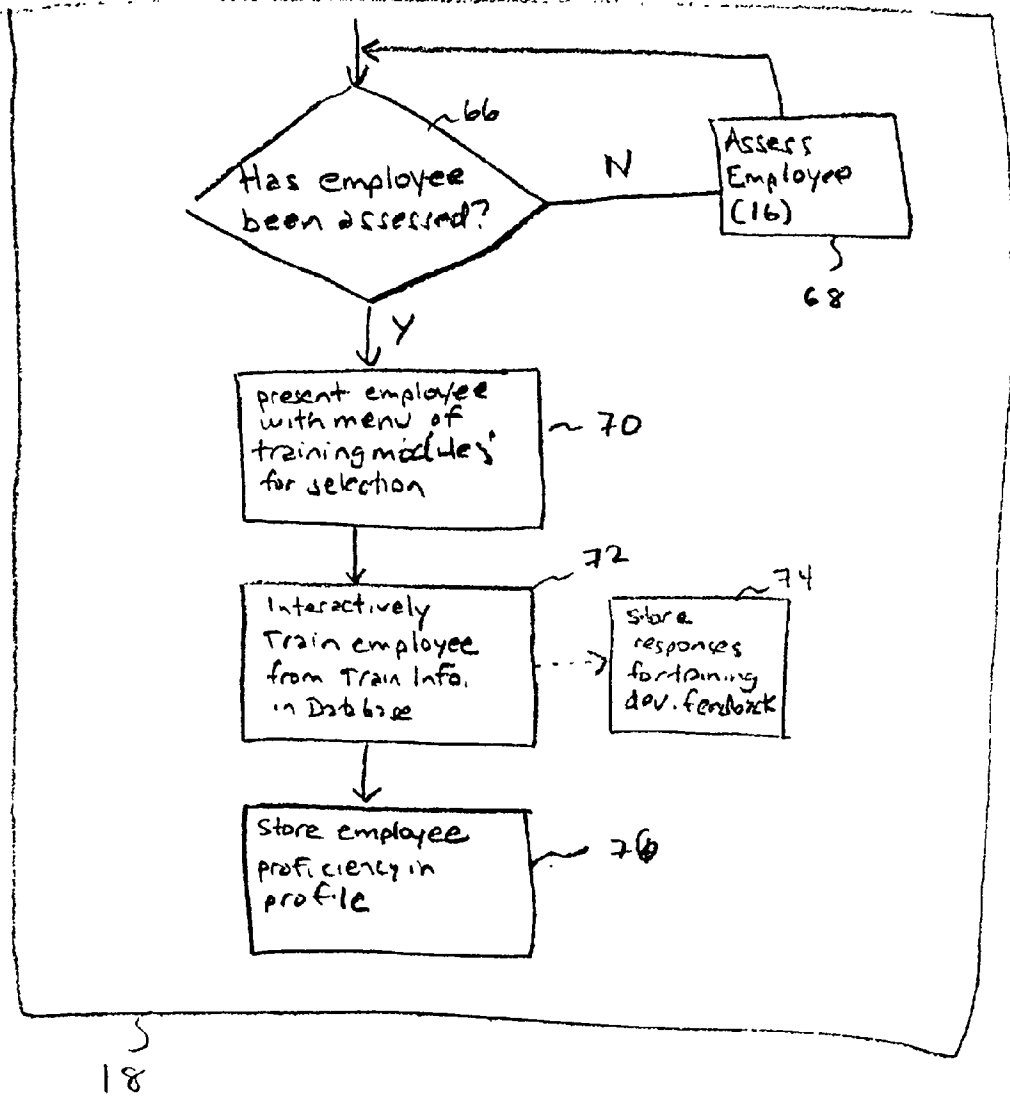 66
Has employee
been assessed?
N
Assess
Employee
(16)
68
Y
present employee
with menu of
training modules
for selection
70
Interactively
Train employee
from Train Info.
in Database
72
Store
responses
for training
dev. feedback
74
Store employee
proficiency in
profile
76
18